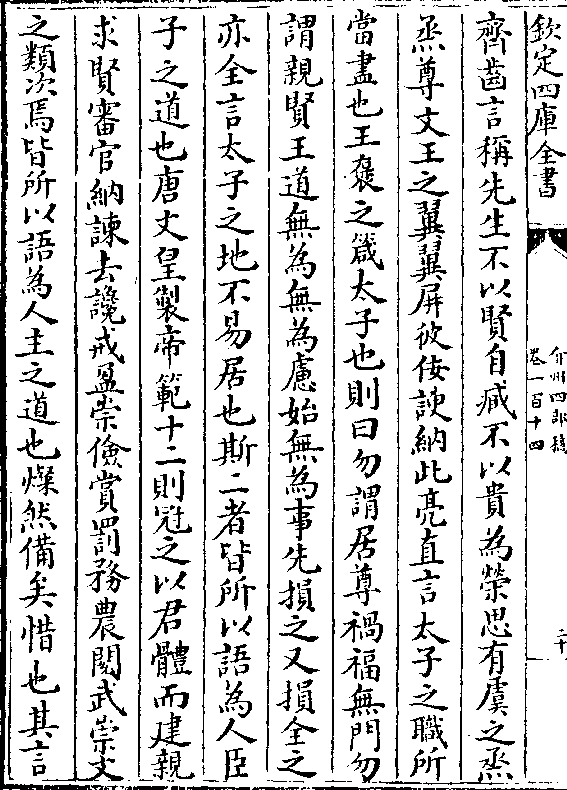 欽定四庫全書
弇州四部稿
卷一百十四
二十
齊齒言稱先生不以賢自臧不以貴為榮思有虞之烝
烝尊文王之翼翼屏彼佞諛納此亮直言太子之職所
當盡也王褒之箴太子也則曰勿謂居尊禍福無門勿
謂親賢王道無為無為慮始無為事先損之又損全之
亦全言太子之地不易居也斯二者皆所以語為人臣
子之道也唐文皇製帝範十二則冠之以君體而建親
求賢審官納諫去讒戒盈崇儉賞罰務農閱武崇文
之類次焉皆所以語為人主之道也燦然備矣惜也其言